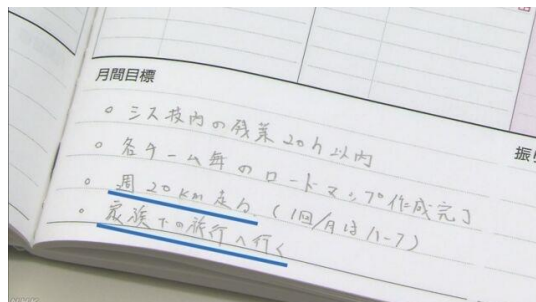 月間目標
振り
○ シス技内の残業20h以内
○ 各チーム毎のロードマップ作成完了
○ 週20km走る。(1回/月はハーフ)
○ 家族での旅行へ行く